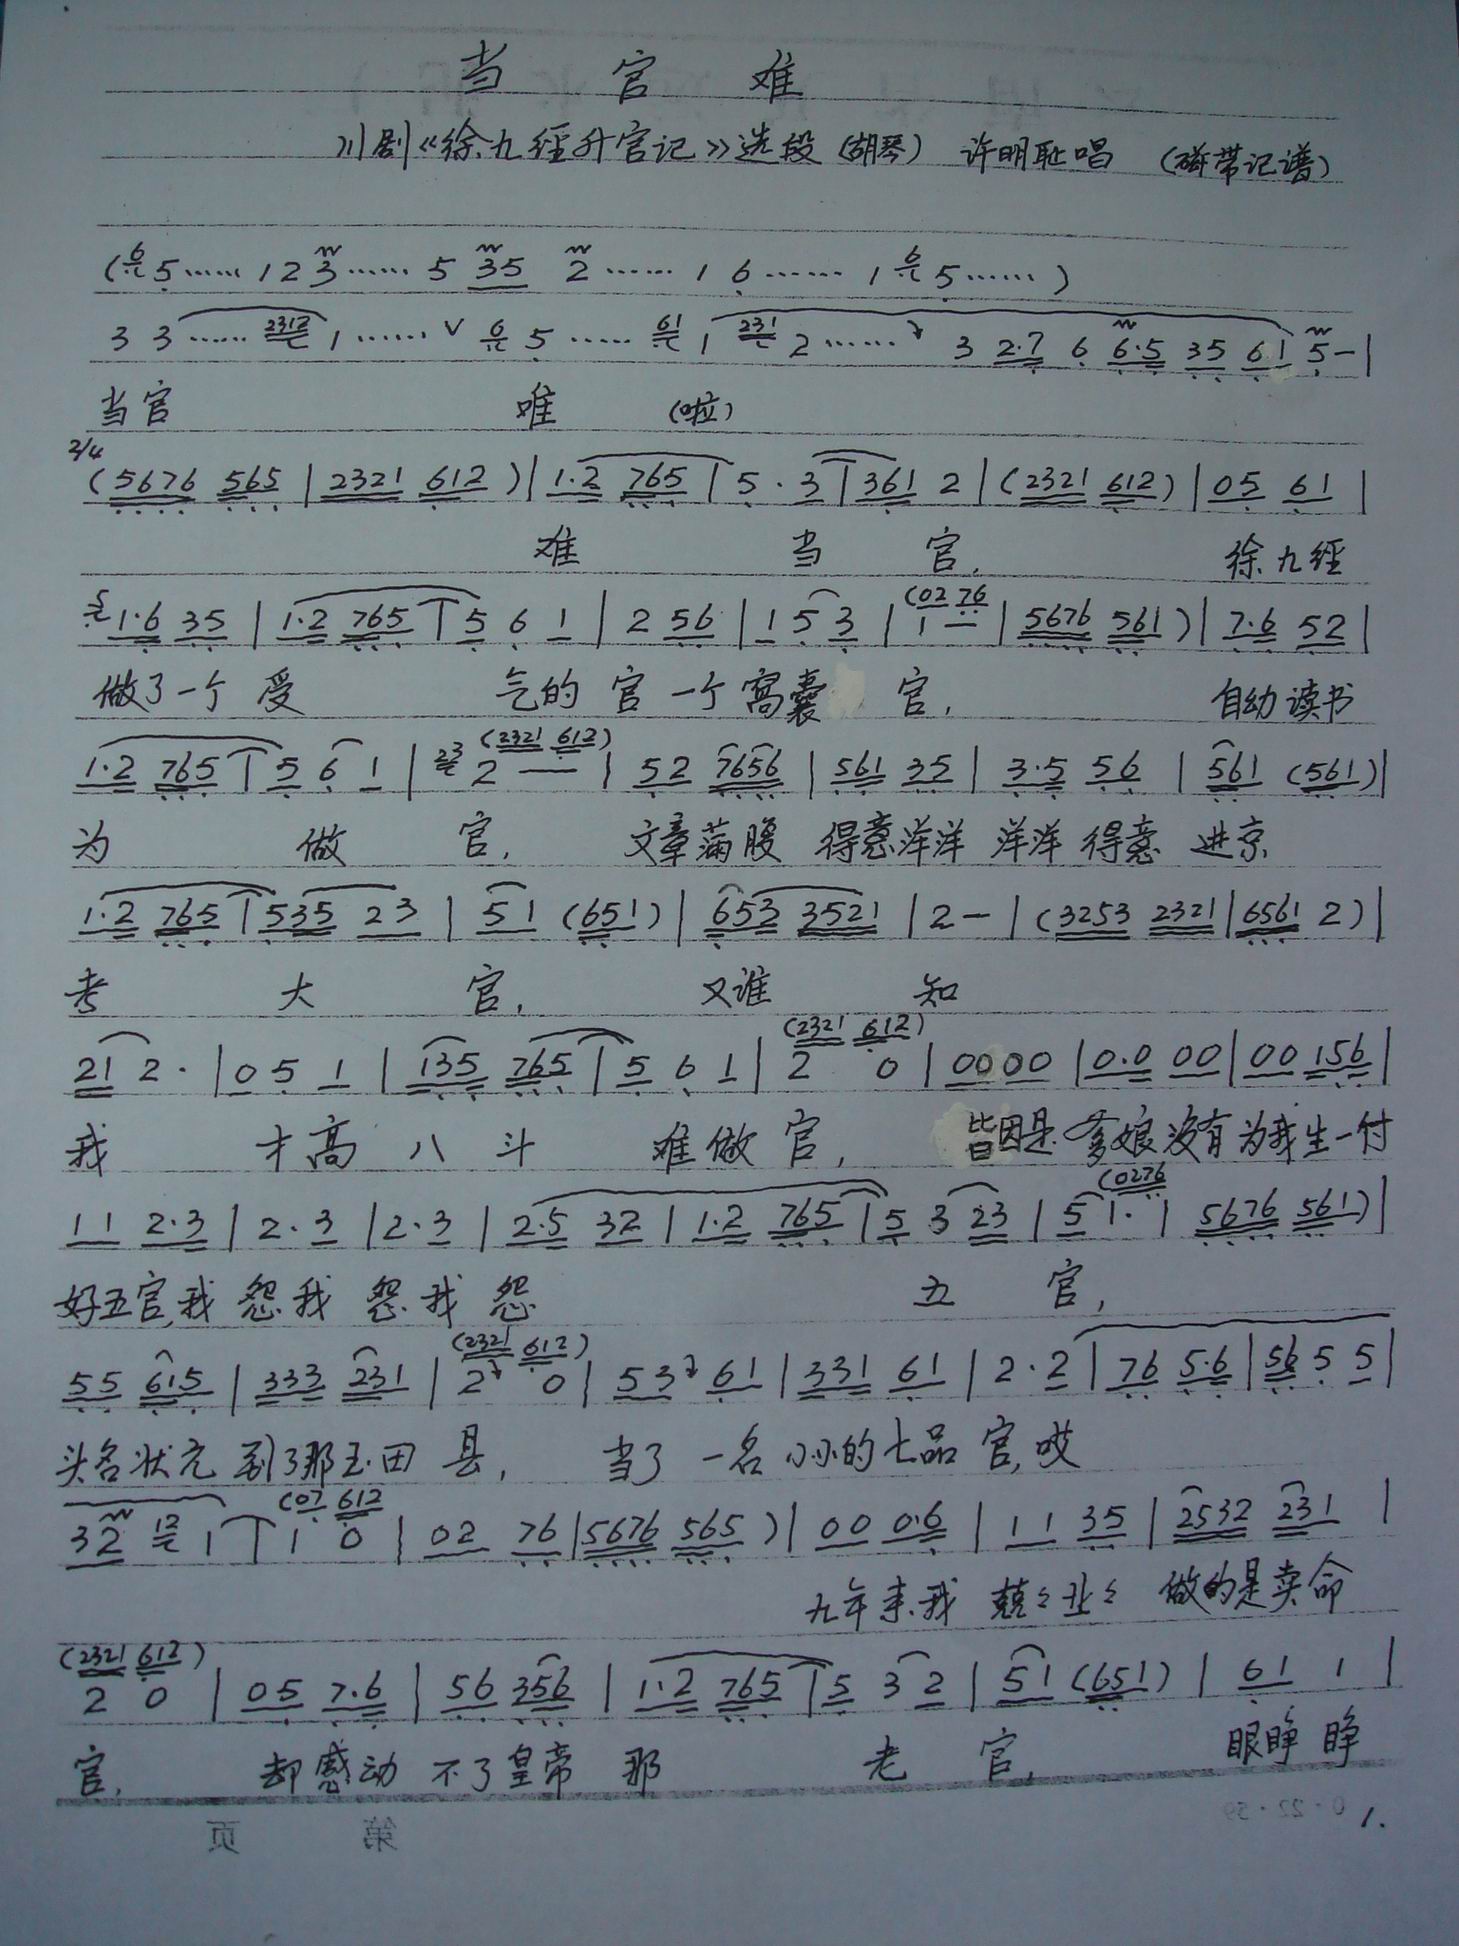 当官难
川剧《徐九经升官记》选段(胡琴) 许明耻唱 (磁带记谱)
(6 5…… 1 2 3…… 5 35 2…… 1 6…… 1 6 5……)
3 3…… 2312 1…… ∨ 6 5…… 61 1 231 2…… 3 2·7 6 6·5 35 61 5—|
当官 唯 (啦)
2/4 (5676 565 | 2321 612) | 1·2 765 | 5·3 | 361 2 | (2321 612) | 05 61 |
难 当 官, 徐九经
5 1·6 35 | 1·2 765 | 5 6 1 | 2 56 | 1 5 3 | (02 76 1 — | 5676 561) | 7·6 52 |
做了一个 受 气的 官 一个 窝囊 官, 自幼读书
1·2 765 | 5 6 1 | 23 (2321 612) 2 — | 52 7656 | 561 35 | 3·5 56 | 561 (561) |
为 做 官, 文章满腹 得意洋洋 洋洋 得意 进京
1·2 765 | 535 23 | 51 (651) | 653 3521 | 2 — | (3253 2321 | 6561 2) |
考 大 官, 又谁 知
21 2· | 05 1 | 135 765 | 5 6 1 | (2321 612) 2 0 | 00 00 | 0·0 00 | 00 156 |
我 才高 八 斗 难做 官, 皆因是 爹娘没有为我生一付
11 2·3 | 2·3 | 2·3 | 2·5 32 | 1·2 765 | 5 3 23 | 5 1· (0276 | 5676 561) |
好五官,我 怨我 怨我 怨 五 官,
55 615 | 333 231 | (2321 612) 2 0 | 53 61 | 331 61 | 2·2 | 76 5·6 | 56 5 5 |
头名状元 到了那玉田 县, 当了 一名 小小的七品 官,哎
32 12 1 | (07 612 1 0 | 02 76 | 5676 565) | 00 0·6 | 11 35 | 2532 231 |
九年来我 兢々业々 做的是卖命
(2321 612) 2 0 | 05 7·6 | 56 356 | 1·2 765 | 5 3 2 | 51 (651) | 61 1 |
官, 却感动 不了皇帝 那 老 官, 眼睁 睁
第 页
0·22·59
1.